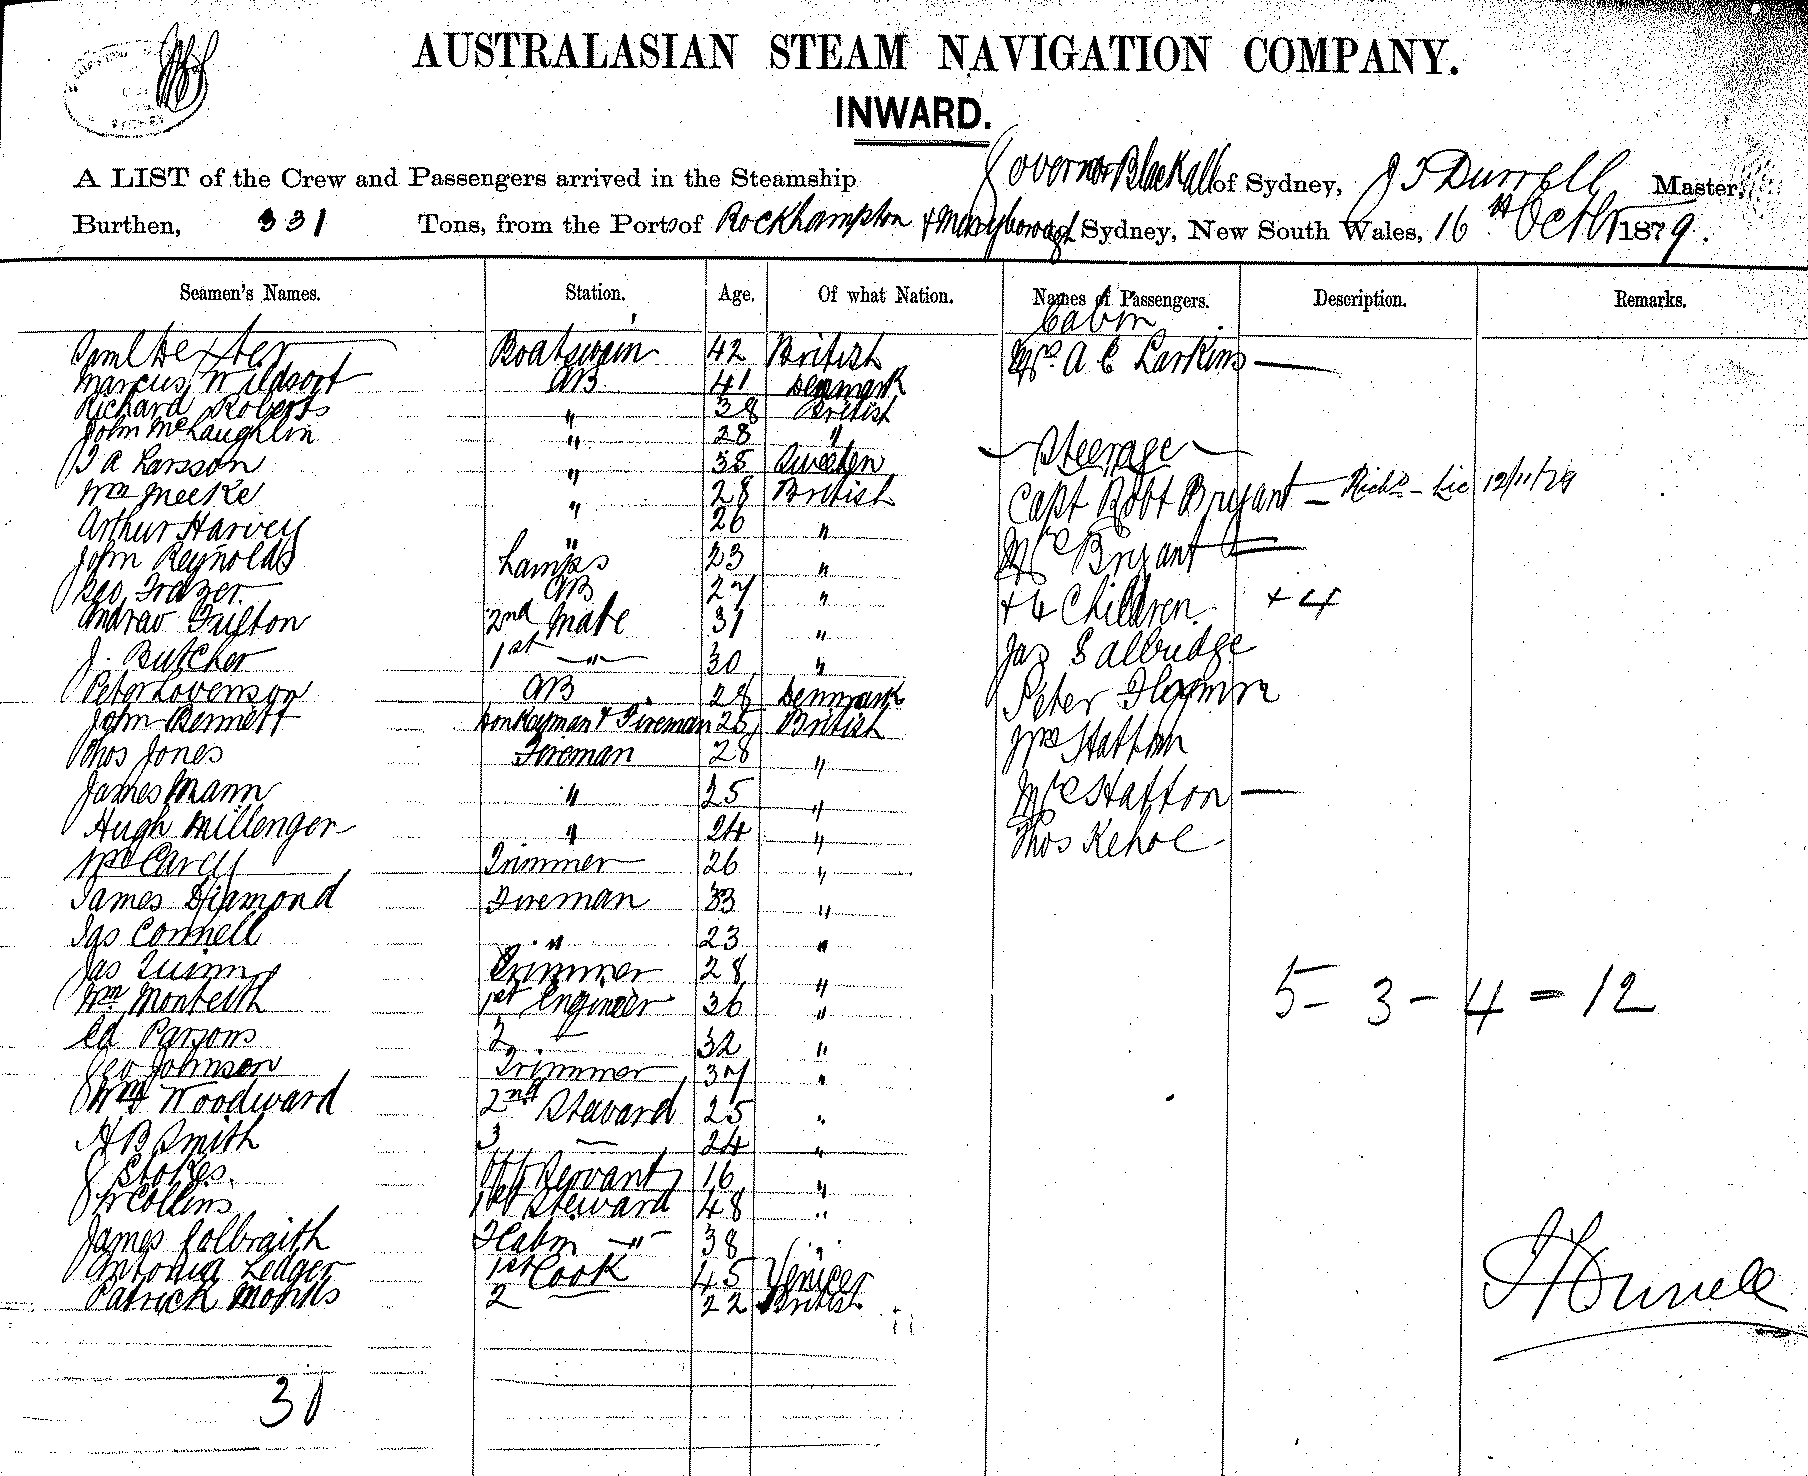 AUSTRALASIAN STEAM NAVIGATION COMPANY.
INWARD.
A LIST of the Crew and Passengers arrived in the Steamship Governor Blackall of Sydney, J F Durrell Master,
Burthen, 331 Tons, from the Port of Rockhampton & Maryborough Sydney, New South Wales, 16th Octbr 1879.
Seamen's Names. Station. Age. Of what Nation. Names of Passengers. Description. Remarks.
Cabin
Saml Hexter Boatswain 42 British Mrs. A C Larkins —
Marcus Wildsort AB 41 Denmark
Richard Roberts " 38 British
John McLaughlin " 28 "
— Steerage —
J A Larsson " 35 Sweeden
Wm Meeke " 28 British Capt Robt Bryant — Lic 12/11/79
Arthur Harvey " 26 "
John Reynolds Lamps 23 " Mrs Bryant
Geo Frazer AB 27 " + 4 Children + 4
Andrew Fulton 2nd Mate 31 "
J. Butcher 1st —"— 30 " Jas Salbudge
Peter Lovenson AB 28 Denmark Peter
John Bennett Donkeyman & Fireman 25 British Wm Statton
Thos Jones Fireman 28 "
James Mann " 25 " Mrs Statton —
Hugh Millenger " 24 " Thos Kehoe
Wm Carey Trimmer 26 "
James Diamond Fireman 33 "
Jas Connell " 23 "
Jas Quinn Trimmer 28 "
Wm Monteith 1st Engineer 36 " 5 – 3 – 4 = 12
Ed Parsons 2 " 32 "
Geo Johnson Trimmer 37 "
Wm Woodward 2nd Steward 25 "
H B Smith 3 — 24 "
J. Stokes. Servant 16 "
W Collins 1st Steward 48 "
James Colbraith F Cabin —"— 38 "
Antonia Ledger 1st Cook 45 Venicer
Patrick Monks 2 22 British
J F Durrell
30